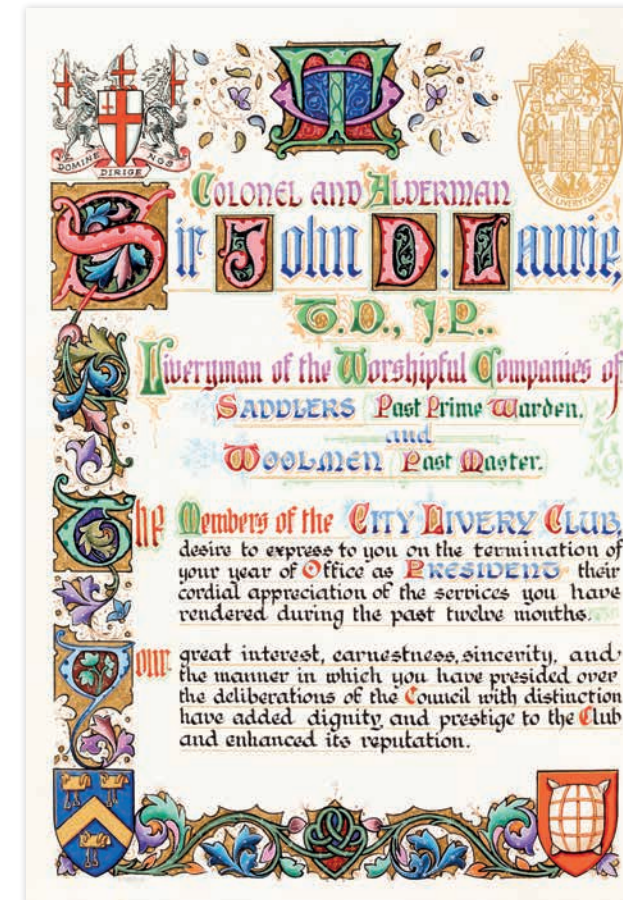 DOMINE DIRIGE NOS
COLONEL AND ALDERMAN
Sir John D. Laurie,
T.D., J.P..
Liveryman of the Worshipful Companies of
SADDLERS Past Prime Warden.
and
WOOLMEN Past Master.
The Members of the CITY LIVERY CLUB,
desire to express to you on the termination of
your year of Office as PRESIDENT their
cordial appreciation of the services you have
rendered during the past twelve months.
Your great interest, earnestness, sincerity, and
the manner in which you have presided over
the deliberations of the Council with distinction
have added dignity and prestige to the Club
and enhanced its reputation.